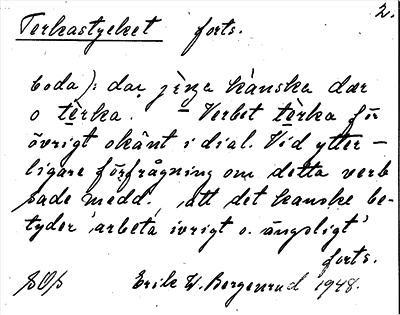 Terkastycket forts. 2.
boda): dar jènga kànska dær
o tèrka. – Verbet tèrka för
övrigt okänt i dial. Vid ytter-
ligare förfrågning om detta verb
sade medd., att det kanske be-
tyder 'arbeta ivrigt o. ängsligt'
forts.
Erik W. Bergenrud 1948.